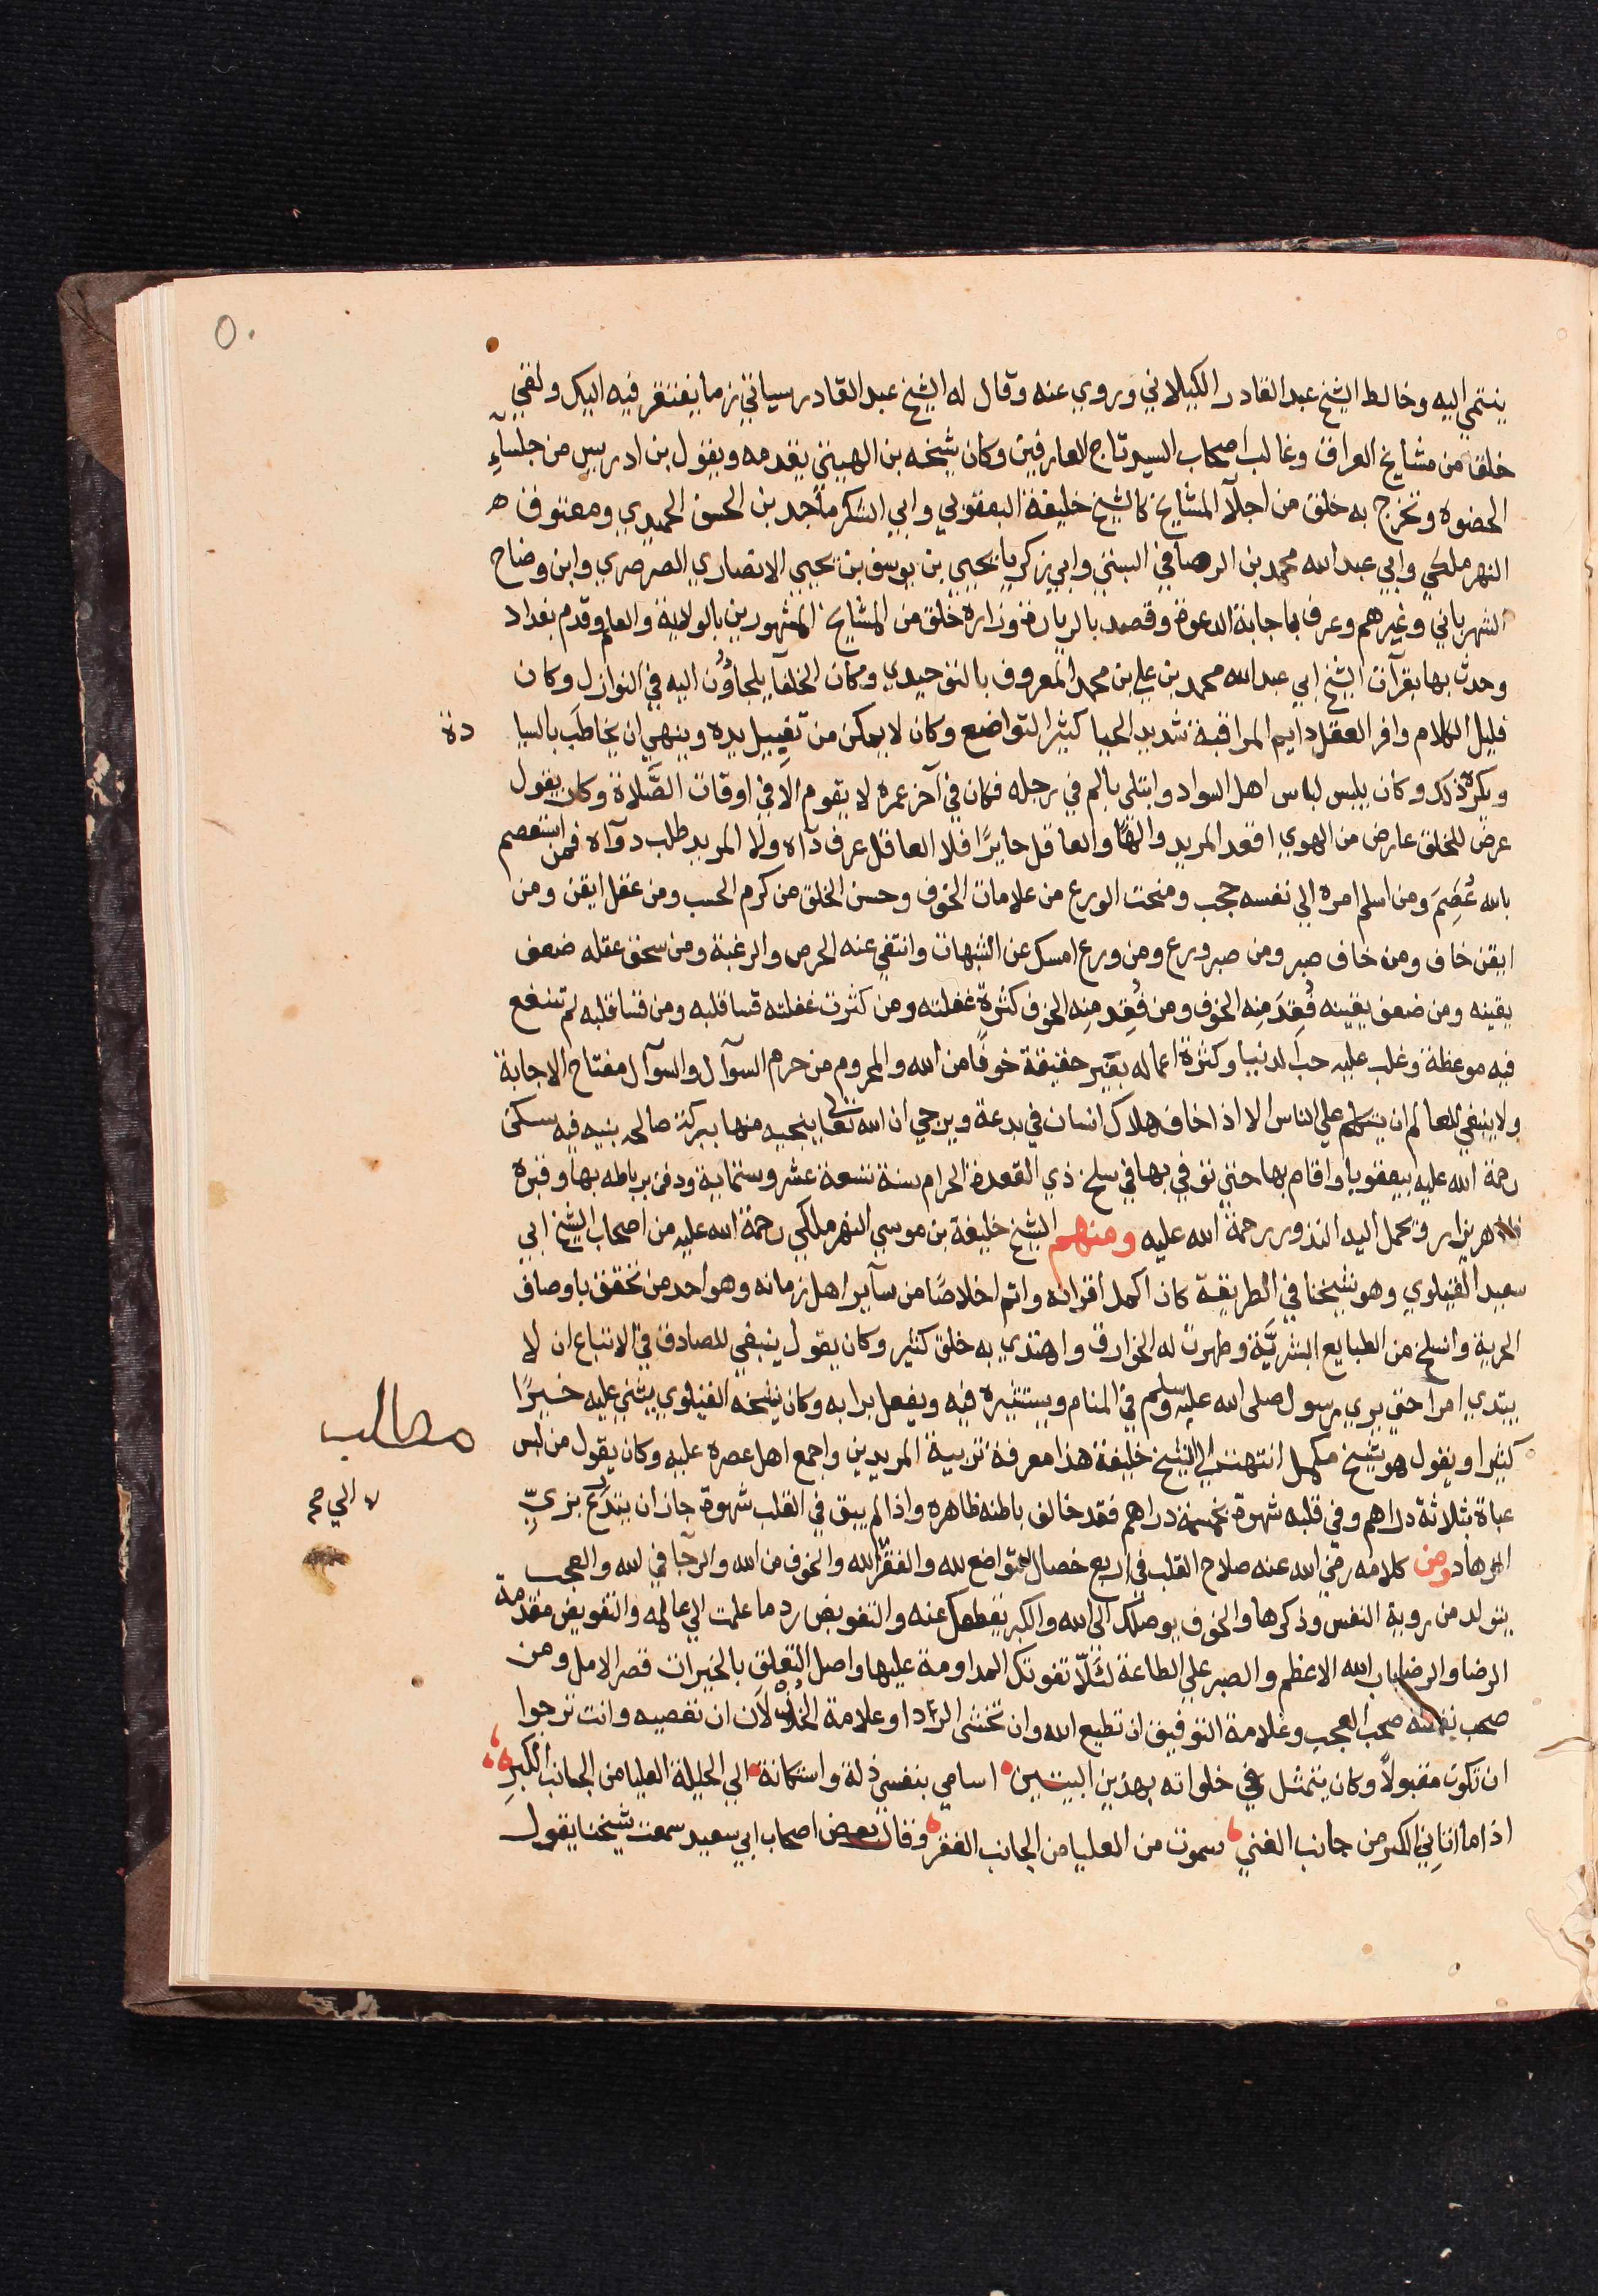 ٥٠
ينتمي اليه وخالط الشيخ عبد القادر الكيلاني وروي عنه وقال له الشيخ عبد القادر سياتي زمان يفتقر فيه اليك ولقي
خلقا من مشايخ العراق وغالب اصحاب السيد تاج العارفين وكان شيخه بن الهيتي يقدمه ويقول بن ادريس من جلسآء
الحضره وتخرج به خلق من اجلآ المشايخ كالشيخ خليفة البعقوبي وابي الشكر ماجد بن الحسن الحميدي ومعتوق ه
النهرملكي وابي عبد الله محمد بن الرصافي السيني وابي زكريا يحيي بن يوسف بن يحيي الانصاري الصرصري وابن وضاح
الشهرباني وغيرهم وعرف باجابة الدعوة وقصد بالزيارة وزاره خلق من المشايخ المشهورين بالولاية والعلم وقدم بغداد
وحدث بها بقرآت الشيخ ابي عبد الله محمد بن علي بن محمد المعروف بالتوحيدي وكان الخلفا يلجاؤن اليه في النوازل وكان
قليل الكلام وافر العقل دايم المراقبة شديد الحيا كثير التواضع وكان لا يمكن من تقبيل يده وينهي ان يخاطب بالسيا دة
ويكره ذلك وكان يلبس لباس اهل السواد وابتلي بالم في رجله فكان في آخر عمره لا يقوم الا في اوقات الصَّلاة وكان يقول
عرض للخلق عارض من الهوي اقعد المريد والهًا والعاقل حايرًا فلا العاقل عرف دآه ولا المريد طلب دوآه فمن استعصم
بالله عُصِمَ ومن اسلم امره الي نفسه حجب ومنحت الورع من علامات الخوف وحسن الخلق من كرم الحسب ومن عقل ايقن ومن
ايقن خاف ومن خاف صبر ومن صبر ورع ومن ورع امسك عن الشبهات وانتفي عنه الحرص والرغبة ومن سخف عقله ضعف
يقينه ومن ضعف يقينه فُقِدَ مِنه الخوف ومن فُقِد مِنه الخوف كثرة غفلته ومن كثرت غفلته قسا قلبه ومن قسا قلبه لم تنفع
فيه موعظة وغلب عليه حب الدنيا وكثرة اعماله بغير حقيقة خوفًا من الله والمحروم من حرم السوآل والسوآل مفتاح الاجابة
ولا ينبغي للعالم ان يتكلم علي الناس الا اذا خاف هلاك انسان في بدعة ويرجي ان الله تعالى ينجيه منها ببركة صالح بنيه فيه سكن
رحمة الله عليه ببعقوبا واقام بها حتي توفي بها في سلخ ذي القعدة الحرام سنة تسعة عشر وستماية ودفن برباطه بها وقبره
ظاهر يزار وتحمل اليه النذور رحمة الله عليه ومنهم الشيخ خليفة بن موسي النهرملكي رحمة الله عليه من اصحاب الشيخ ابي
سعيد القيلوي وهو شيخنا في الطريقة كان اكمل اقرانه واتم اخلاصًا من سآير اهل زمانه وهو احد من تحقق باوصاف
الحرية وانسلخ من الطبايع البشريَّة وظهرت له الخوارق واهتدي به خلق كثير وكان يقول ينبغي للصادق في الاتباع ان لا
يبتدي امرا حتي يري رسول صلى الله عليه وسلم في المنام ويستشيره فيه ويفعل برايه وكان شيخه القيلوي يثني عليه خيرًا
كثيرا ويقول هو شيخ مكمل انتهت الي الشيخ خليفة هذا معرفة تربية المريدين واجمع اهل عصره عليه وكان يقول من لبس
مطالب
عباة بثلاثة دراهم وفي قلبه شهوة بخمسة دراهم فقد خالف باطنه ظاهره واذا لم يبق في القلب شهوة جاز ان يتدرع بزيِّ
الزهاد ومن كلامه رضي الله عنه صلاح القلب في اربع خصال التواضع لله والفقر الله والخوف من الله والرجا في الله والعجب
يتولد من روية النفس وذكرها والخوف يوصلك الى الله والكبر يقطعك عنه والتفويض رد ما علمت الي عالمه والتفويض مقدمة
الرضا والرضا باب الله الاعظم والصبر علي الطاعة لئلّا تفوتك المداومة عليها واصل التعلق بالخيرات قصر الامل ومن
صحب نفسه صحب العجب وعلامة التوفيق ان تطيع الله وان تخشى الردا وعلامة الخذلان ان تعصيه وانت ترجوا
ان تكون مقبولاً وكان يتمثل في خلواته بهذين البيتين اسامي بنفسي ذلة واستكانة الي الخليلة العليا من الجانب الكبرِ
اذا ما اتاني الكبر من جانب الغني سموت من العليا من الجانب الفقر وقال بعض اصحاب ابي سعيد سمعت شيخنا يقول